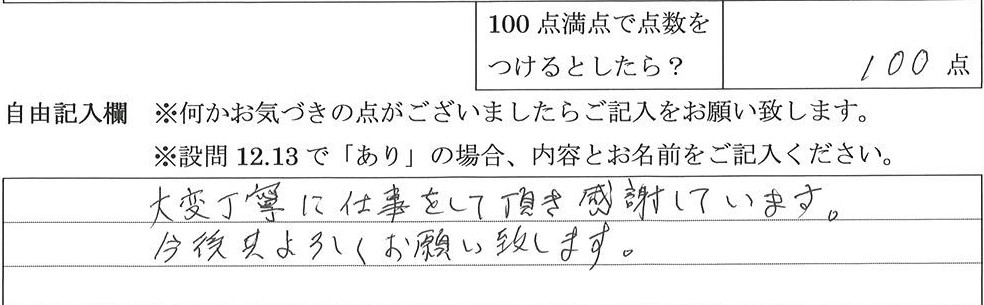 100点満点で点数を
つけるとしたら？
100 点
自由記入欄 ※何かお気づきの点がございましたらご記入をお願い致します。
※設問 12.13 で「あり」の場合、内容とお名前をご記入ください。
大変丁寧に仕事をして頂き感謝しています。
今後共よろしくお願い致します。